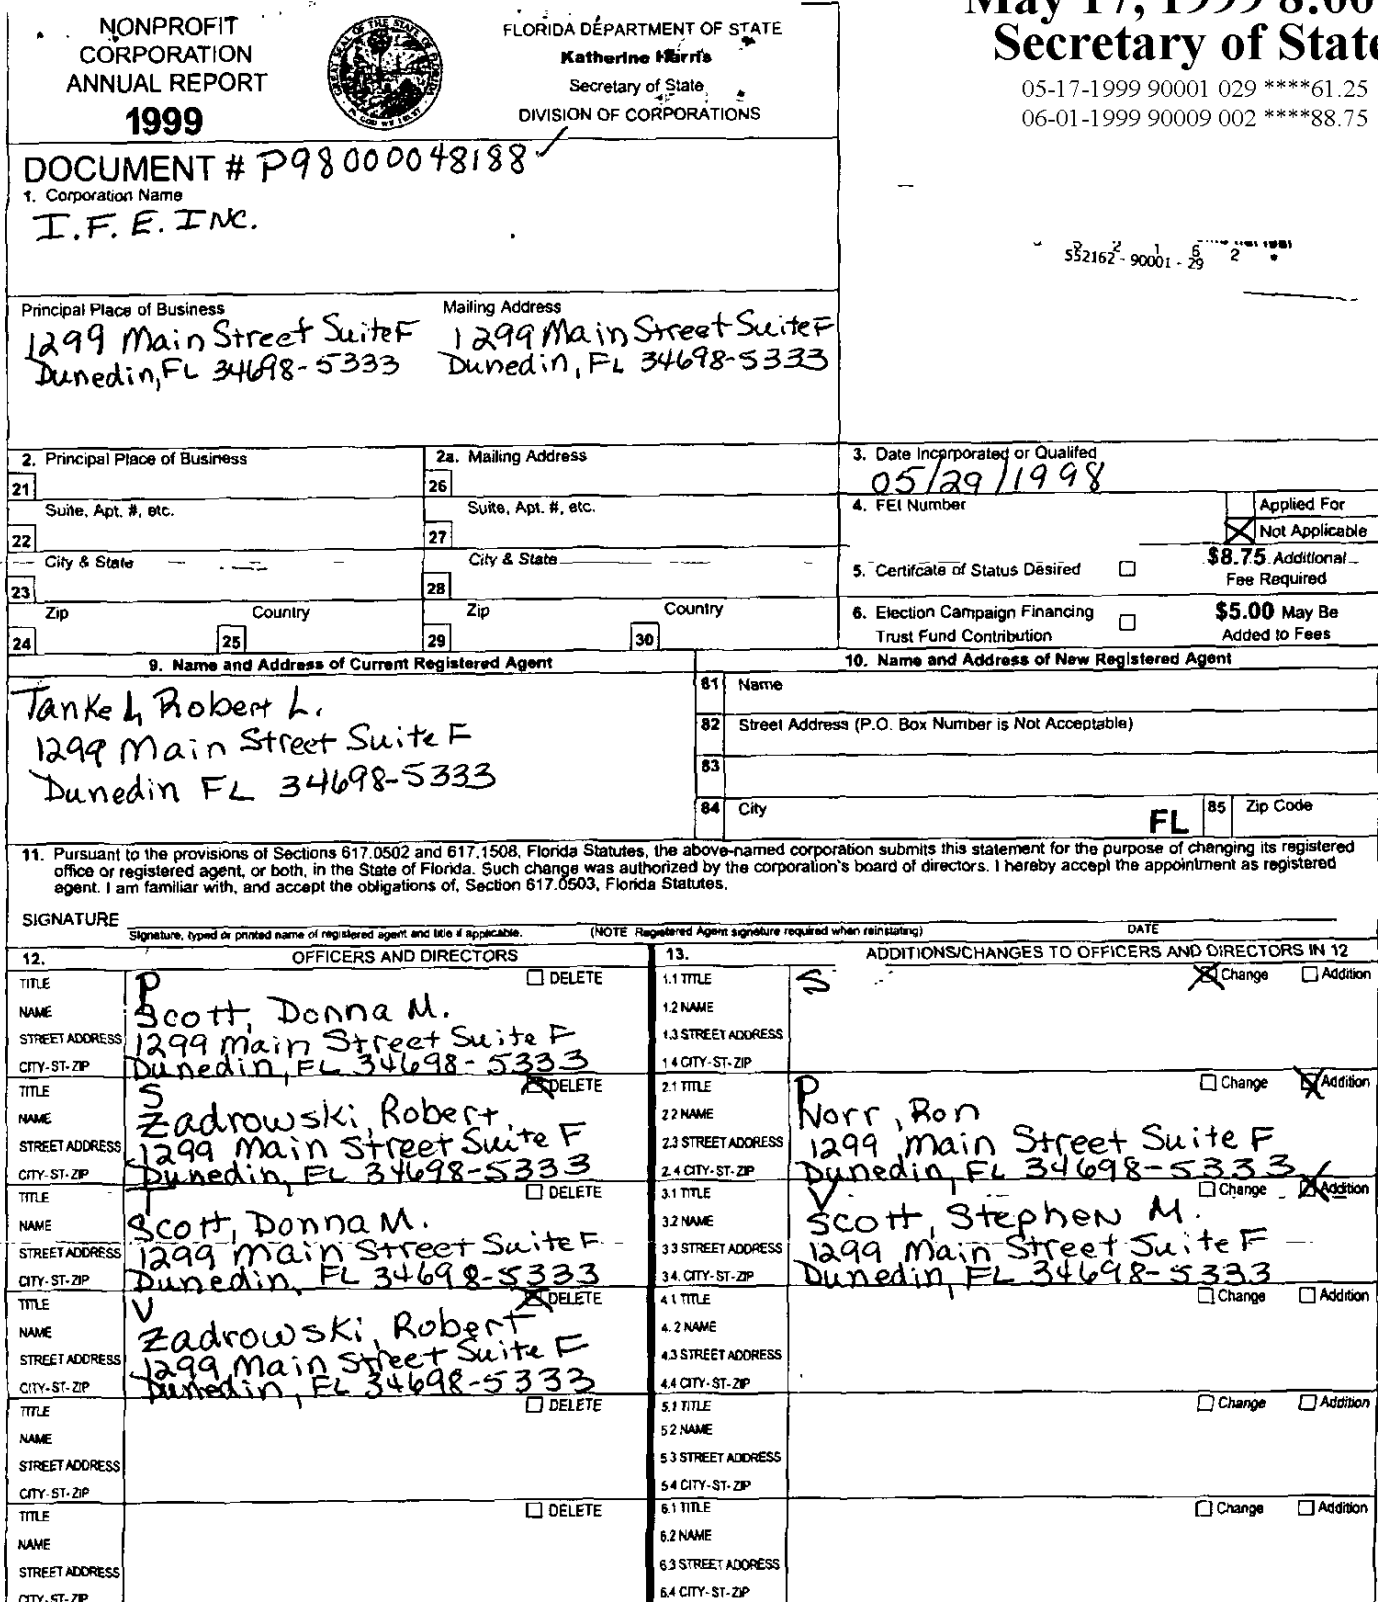 NONPROFIT
CORPORATION
ANNUAL REPORT
1999
FLORIDA DEPARTMENT OF STATE
Katherine Harris
Secretary of State
DIVISION OF CORPORATIONS
May 17, 1999 8:00
Secretary of State
05-17-1999 90001 029 ****61.25
06-01-1999 90009 002 ****88.75
DOCUMENT # P98000048188
1. Corporation Name
I.F.E. INC.
552162 - 90001 - 29
Principal Place of Business
1299 Main Street Suite F
Dunedin, FL 34698-5333
Mailing Address
1299 Main Street Suite F
Dunedin, FL 34698-5333
2. Principal Place of Business
21
Suite, Apt. #, etc.
22
City & State
23
Zip
Country
24
25
2a. Mailing Address
26
Suite, Apt. #, etc.
27
City & State
28
Zip
Country
29
30
3. Date Incorporated or Qualifed
05/29/1998
4. FEI Number
Applied For
Not Applicable
5. Certifcate of Status Desired
$8.75 Additional
Fee Required
6. Election Campaign Financing
Trust Fund Contribution
$5.00 May Be
Added to Fees
9. Name and Address of Current Registered Agent
Tankel, Robert L.
1299 Main Street Suite F
Dunedin FL 34698-5333
10. Name and Address of New Registered Agent
81 Name
82 Street Address (P.O. Box Number is Not Acceptable)
83
84 City
FL
85 Zip Code
11. Pursuant to the provisions of Sections 617.0502 and 617.1508, Florida Statutes, the above-named corporation submits this statement for the purpose of changing its registered
office or registered agent, or both, in the State of Florida. Such change was authorized by the corporation's board of directors. I hereby accept the appointment as registered
agent. I am familiar with, and accept the obligations of, Section 617.0503, Florida Statutes.
SIGNATURE
Signature, typed or printed name of registered agent and title if applicable.
(NOTE Registered Agent signature required when reinstating)
DATE
12. OFFICERS AND DIRECTORS
TITLE P DELETE
NAME Scott, Donna M.
STREET ADDRESS 1299 Main Street Suite F
CITY-ST-ZIP Dunedin, FL 34698-5333
TITLE S DELETE
NAME Zadrowski, Robert
STREET ADDRESS 1299 Main Street Suite F
CITY-ST-ZIP Dunedin, FL 34698-5333
TITLE T DELETE
NAME Scott, Donna M.
STREET ADDRESS 1299 Main Street Suite F
CITY-ST-ZIP Dunedin, FL 34698-5333
TITLE V DELETE
NAME Zadrowski, Robert
STREET ADDRESS 1299 Main Street Suite F
CITY-ST-ZIP Dunedin, FL 34698-5333
TITLE DELETE
NAME
STREET ADDRESS
CITY-ST-ZIP
TITLE DELETE
NAME
STREET ADDRESS
CITY-ST-ZIP
13. ADDITIONS/CHANGES TO OFFICERS AND DIRECTORS IN 12
1.1 TITLE S Change Addition
1.2 NAME
1.3 STREET ADDRESS
1.4 CITY-ST-ZIP
2.1 TITLE P Change Addition
2.2 NAME Norr, Ron
2.3 STREET ADDRESS 1299 Main Street Suite F
2.4 CITY-ST-ZIP Dunedin, FL 34698-5333
3.1 TITLE V Change Addition
3.2 NAME Scott, Stephen M.
3.3 STREET ADDRESS 1299 Main Street Suite F
3.4. CITY-ST-ZIP Dunedin, FL 34698-5333
4.1 TITLE Change Addition
4.2 NAME
4.3 STREET ADDRESS
4.4 CITY-ST-ZIP
5.1 TITLE Change Addition
5.2 NAME
5.3 STREET ADDRESS
5.4 CITY-ST-ZIP
6.1 TITLE Change Addition
6.2 NAME
6.3 STREET ADDRESS
6.4 CITY-ST-ZIP